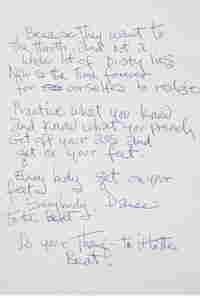 Because they want to
the truth, and not a
whole lot of Dirty lies
Now is the time forever
for ourselves to realize
Practice what you know
and know what you preach
Get off your ass and
get on your feet.
Every body get on your
feet
Everybody Dance
to the Beat
Do your Thang to the
Beat!